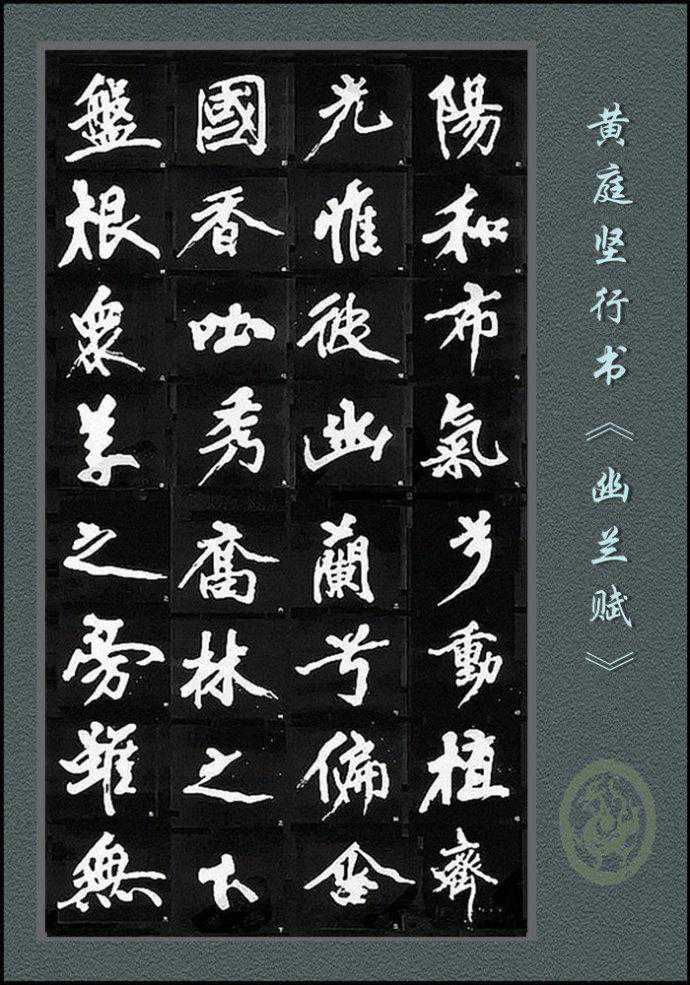 黄庭坚行书《幽兰赋》
陽和布氣兮動植齊
光惟彼幽蘭兮偏含
國香吐秀喬林之下
盤根衆草之旁雖無